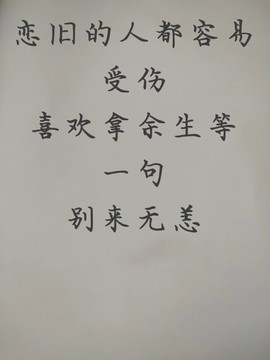 恋旧的人都容易
受伤
喜欢拿余生等
一句
别来无恙